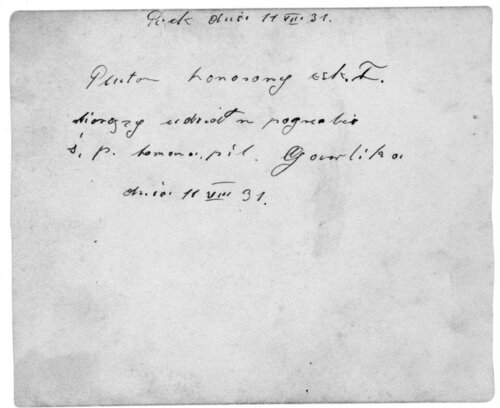 dnia 11 VIII 31.
Pluton honorowy esk. I.
biorący udział w pogrzebie
ś, p. pil. Gawlika
dnia 11 VIII 31.